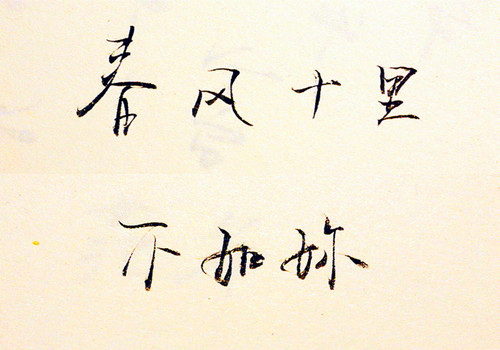 春风十里
不如妳